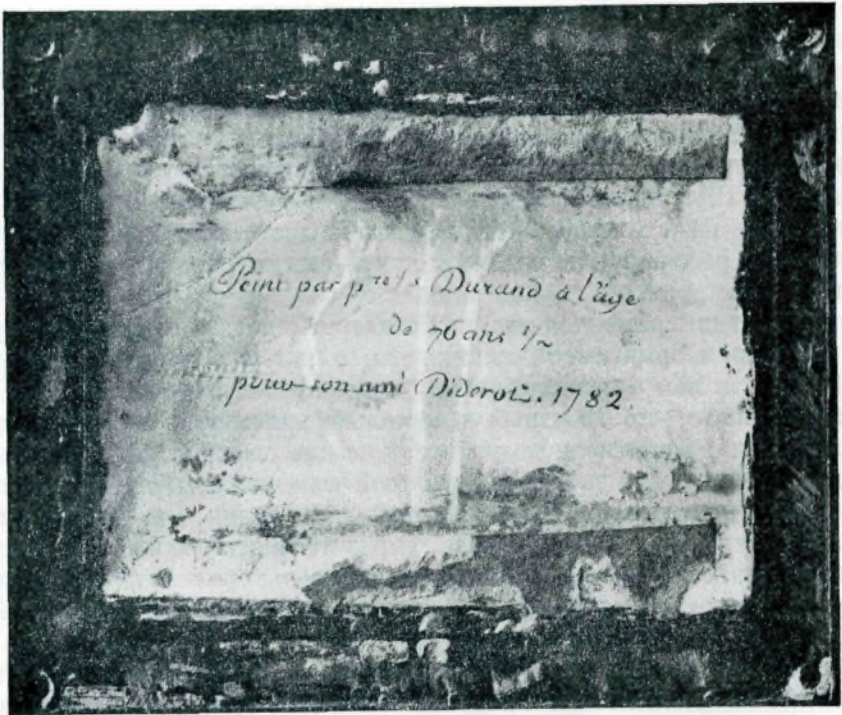 Peint par Durand à l'âge
de 76 ans 1/2
pour son ami Diderot. 1782.